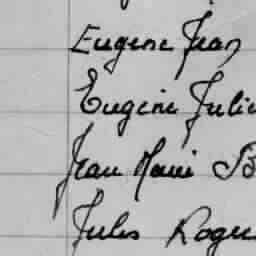 Eugene Jean
Eugène Julie
Jean Marie B
Jules Roger